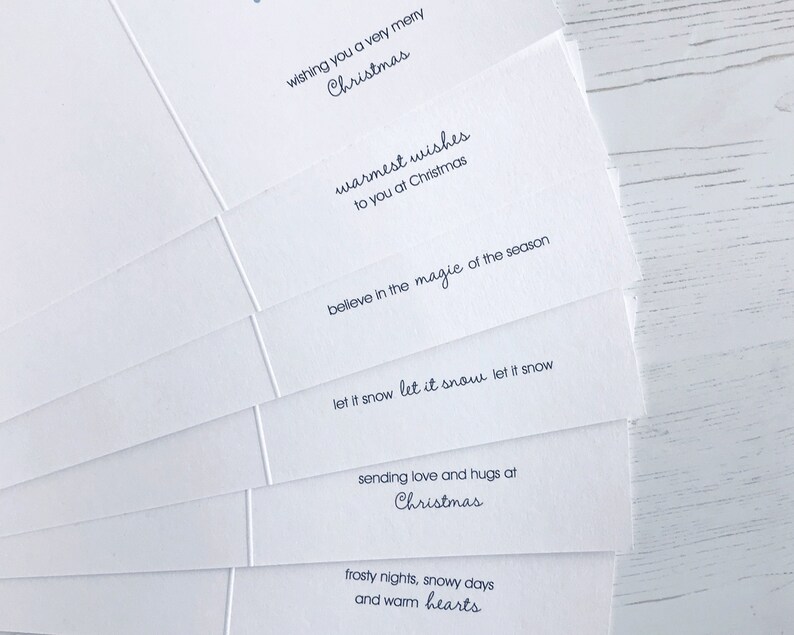 wishing you a very merry
Christmas
warmest wishes
to you at Christmas
believe in the magic of the season
let it snow let it snow let it snow
sending love and hugs at
Christmas
frosty nights, snowy days
and warm hearts